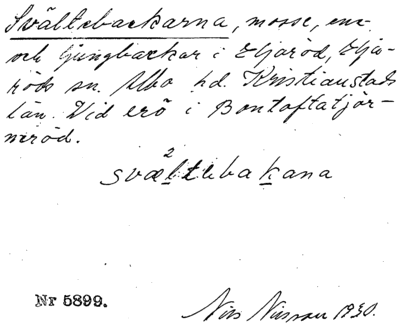 Svältebackarna, mosse, en-
och ljungbackar i Eljaröd, Elja-
röds sn. Albo hd. Kristianstads
län. Vid erö i Bontoftatjör-
neröd.
2
svæltebakana
Nr 5899.
Nils Nilsson 1930.